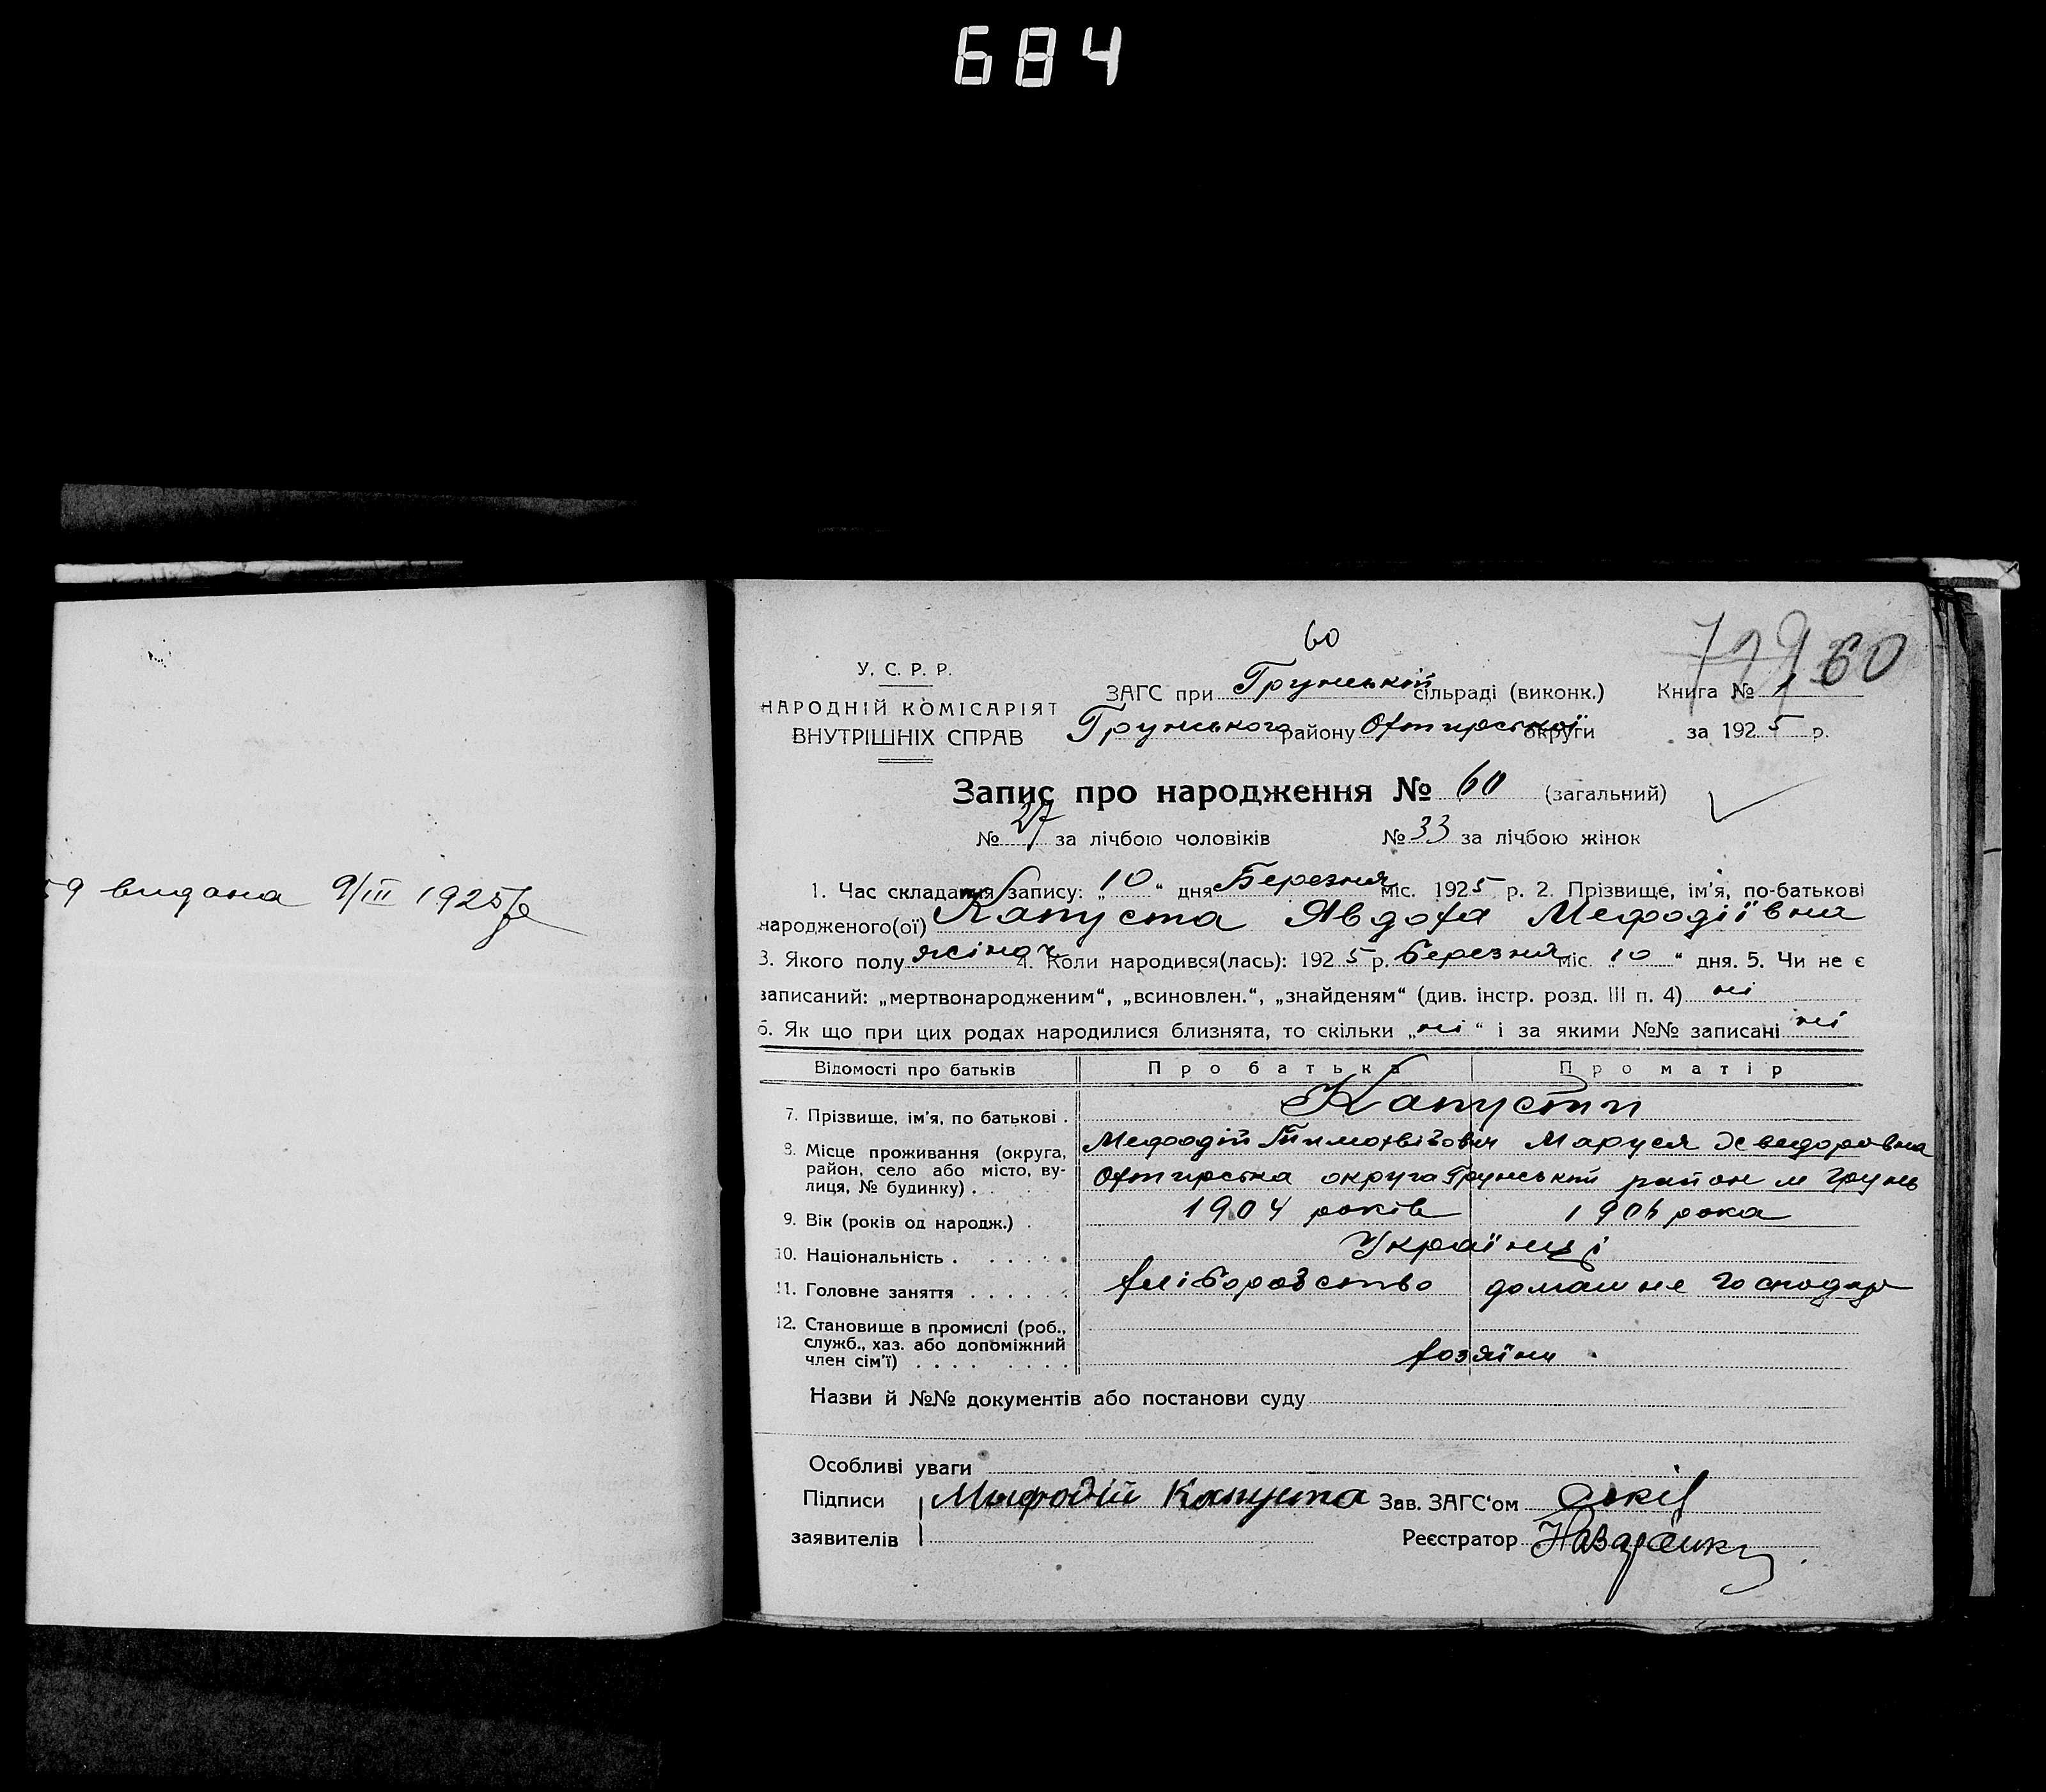 684
59 видана 9/III 1925 р
60
719 60
У. С. Р. Р.
НАРОДНІЙ КОМІСАРІЯТ
ВНУТРІШНІХ СПРАВ
ЗАГС при Грунській сільраді (виконк.) Книга № 1
Грунського району Охтирської округи за 1925 р.
Запис про народження № 60 (загальний)
№ 27 за лічбою чоловіків № 33 за лічбою жінок
1. Час складання запису: „10“ дня Березня міс. 1925 р. 2. Прізвище, ім'я, по-батькові
народженого(ої) Капуста Явдоха Мефодіївна
3. Якого полу жіноч. 4. Коли народився(лась): 1925 р. березня міс. 10 “ дня. 5. Чи не є
записаний: „мертвонародженим“, „всиновлен.“, „знайденям“ (див. інстр. розд. III п. 4) ні
6. Як що при цих родах народилися близнята, то скільки „ні“ і за якими №№ записані ні
Відомості про батьків Про батька Про матір
7. Прізвище, ім'я, по батькові . Капусти
Мефодій Тимохвійович Маруся Хведоровна
8. Місце проживання (округа,
район, село або місто, ву-
лиця, № будинку) . . Охтирська округа Грунський район м Грунь
9. Вік (років од народж.) . 1904 років 1906 рока
10. Національність . . . . . . Українці
11. Головне заняття . . . . . . хліборобство домашнє господар
12. Становище в промислі (роб.,
служб., хаз. або допоміжний
член сім'ї) . . . . . . . . хозяїни
Назви й №№ документів або постанови суду
Особливі уваги
Підписи Мефодій Капуста Зав. ЗАГС'ом
заявителів Реєстратор Назаренко